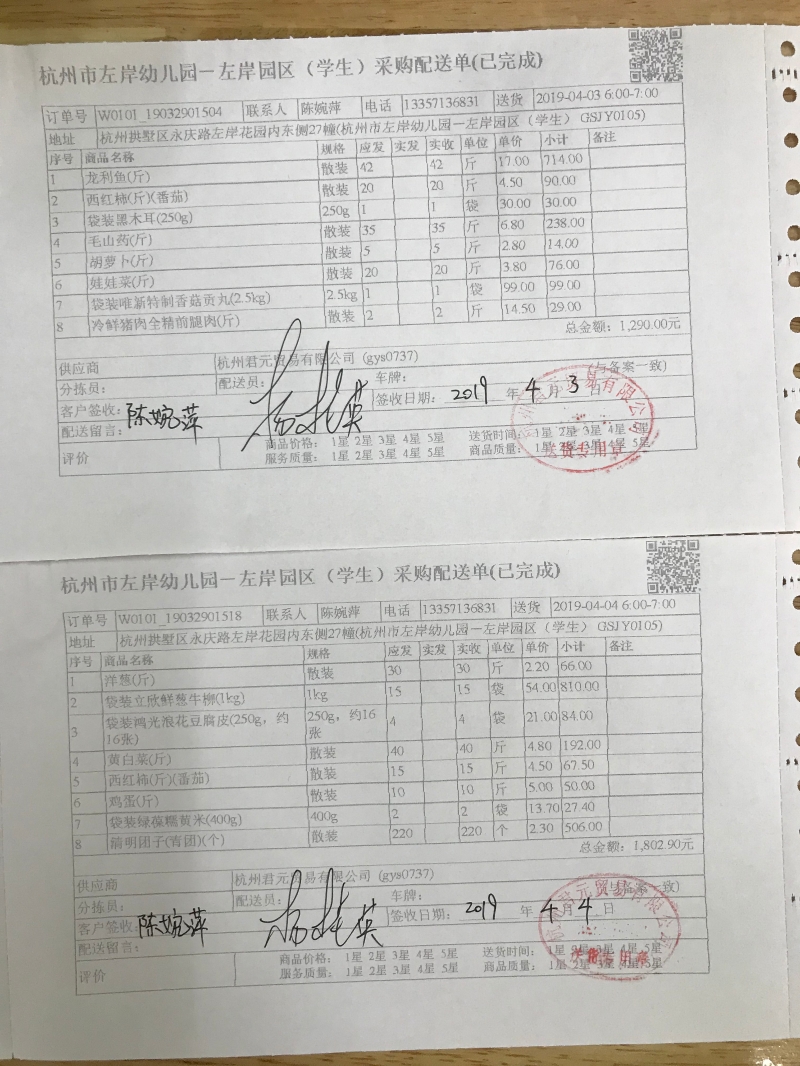 杭州市左岸幼儿园—左岸园区（学生）采购配送单(已完成)
订单号 W0101_19032901504 联系人 陈婉萍 电话 13357136831 送货 2019-04-03 6:00-7:00
地址 杭州拱墅区永庆路左岸花园内东侧27幢(杭州市左岸幼儿园—左岸园区（学生） GSJY0105)
序号 商品名称 规格 应发 实发 实收 单位 单价 小计 备注
1 龙利鱼(斤) 散装 42 42 斤 17.00 714.00
2 西红柿(斤)(番茄) 散装 20 20 斤 4.50 90.00
3 袋装黑木耳(250g) 250g 1 1 袋 30.00 30.00
4 毛山药(斤) 散装 35 35 斤 6.80 238.00
5 胡萝卜(斤) 散装 5 5 斤 2.80 14.00
6 娃娃菜(斤) 散装 20 20 斤 3.80 76.00
7 袋装唯新特制香菇贡丸(2.5kg) 2.5kg 1 1 袋 99.00 99.00
8 冷鲜猪肉全精前腿肉(斤) 散装 2 2 斤 14.50 29.00
总金额：1,290.00元
供应商 杭州君元贸易有限公司 (gys0737)
分拣员： 配送员： 车牌： (与备案一致)
客户签收： 陈婉萍 签收日期： 2019 年 4 月 3 日
配送留言：
评价 商品价格： 1星 2星 3星 4星 5星 送货时间： 1星 2星 3星 4星 5星
服务质量： 1星 2星 3星 4星 5星 商品质量： 1星 2星 3星 4星 5星
送货专用章
杭州市左岸幼儿园—左岸园区（学生）采购配送单(已完成)
订单号 W0101_19032901518 联系人 陈婉萍 电话 13357136831 送货 2019-04-04 6:00-7:00
地址 杭州拱墅区永庆路左岸花园内东侧27幢(杭州市左岸幼儿园—左岸园区（学生） GSJY0105)
序号 商品名称 规格 应发 实发 实收 单位 单价 小计 备注
1 洋葱(斤) 散装 30 30 斤 2.20 66.00
2 袋装立欣鲜葱牛柳(1kg) 1kg 15 15 袋 54.00 810.00
3 袋装鸿光浪花豆腐皮(250g，约16张) 250g，约16张 4 4 袋 21.00 84.00
4 黄白菜(斤) 散装 40 40 斤 4.80 192.00
5 西红柿(斤)(番茄) 散装 15 15 斤 4.50 67.50
6 鸡蛋(斤) 散装 10 10 斤 5.00 50.00
7 袋装绿葆糯黄米(400g) 400g 2 2 袋 13.70 27.40
8 清明团子(青团)(个) 散装 220 220 个 2.30 506.00
总金额：1,802.90元
供应商 杭州君元贸易有限公司 (gys0737)
分拣员： 配送员： 车牌： (与备案一致)
客户签收： 陈婉萍 签收日期： 2019 年 4 月 4 日
配送留言：
评价 商品价格： 1星 2星 3星 4星 5星 送货时间： 1星 2星 3星 4星 5星
服务质量： 1星 2星 3星 4星 5星 商品质量： 1星 2星 3星 4星 5星
送货专用章